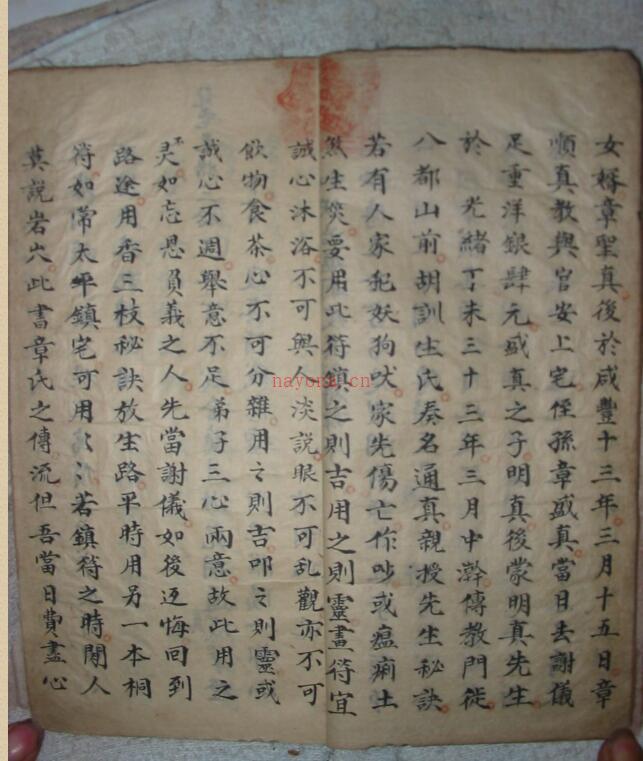 女婿章聖真後於咸豐十三年三月十五日章
順真教與官安上宅侄孫章盛真當日去謝儀
足重洋銀肆元盛真之子明真後蒙明真先生
於光緒丁未三十三年三月中澣傳教門徒
八都山前胡訓生氏奏名通真親授先生秘訣
若有人家犯妖狗吠家先傷亡作吵或瘟痢土
煞生災要用此符鎮之則吉用之則靈畫符宜
誠心沐浴不可與人淡說眼不可乱觀亦不可
飲物食茶心不可分雜用之則吉叩之則靈或
誠心不週舉意不足弟子三心兩意故此用之
不灵如忘恩負義之人先當謝儀如後返悔回到
路途用香三枝秘訣放生路平時用另一本桐
符如常太平鎮宅可用若鎮符之時閒人
莫說岩穴此書章氏之傳流但吾當日費盡心
nayona.cn